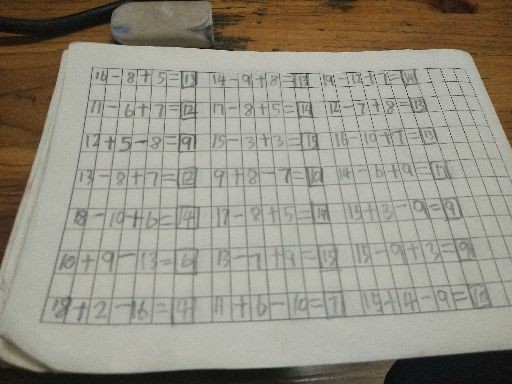 16-8+5=13 14-9+8=13 19-12+7=14
11-6+7=12 17-8+5=14 12-7+8=13
12+5-8=9 15-3+3=15 16-10+7=13
13-8+7=12 9+8-7=10 14-6+9=17
18-10+6=14 17-8+5=14 15+3-9=9
10+9-13=6 13-7+9=15 15-9+3=9
18+2-16=4 11+6-10=7 15+4-9=10